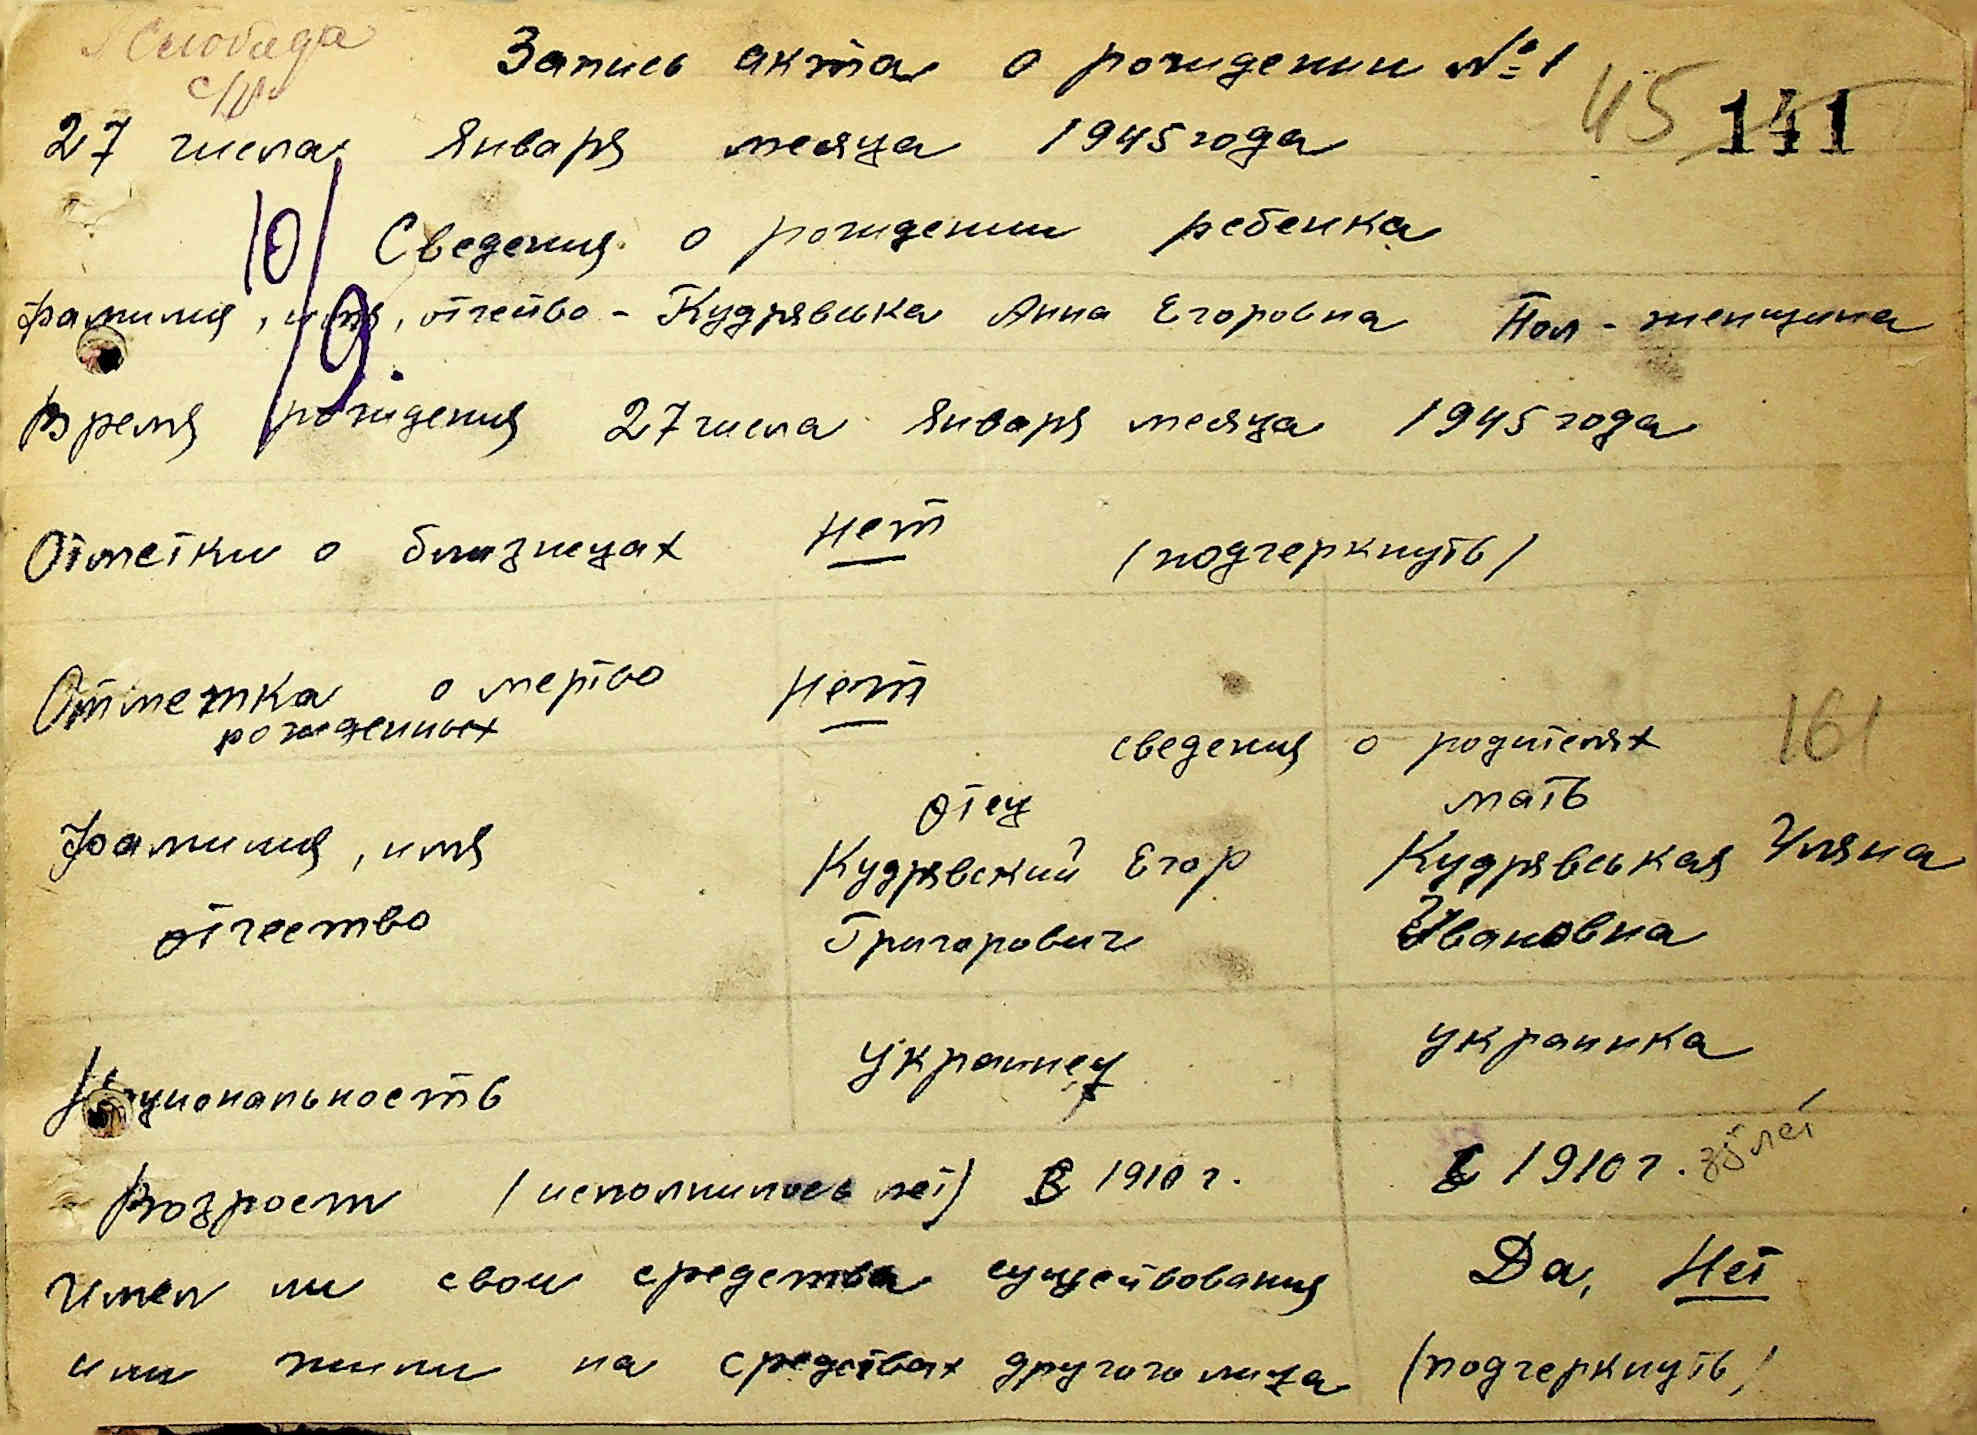 Слобода
с/р
Запись акта о рождении № 1
45 141
27 числа Января месяца 1945 года
10/9.
Сведения о рождении ребенка
Фамилия, имя, отчейво - Кудрявська Анна Егоровна Пол - женщина
Время рождения 27 числа Января месяца 1945 года
Отметки о близнецах нет (подчеркнуть)
Отметка о мертво нет
рожденных
сведения о родителях 161
отец мать
Фамилия, имя Кудрявский Егор Кудрявськая Уляна
отчество Григорович Ивановна
Национальность Украинец украинка
Возраст (исполнилось лет) В 1910 г. В 1910 г. 35 лет
Имел ли свои средства существования Да, Нет
или жили на средствах другого лица (подчеркнуть)